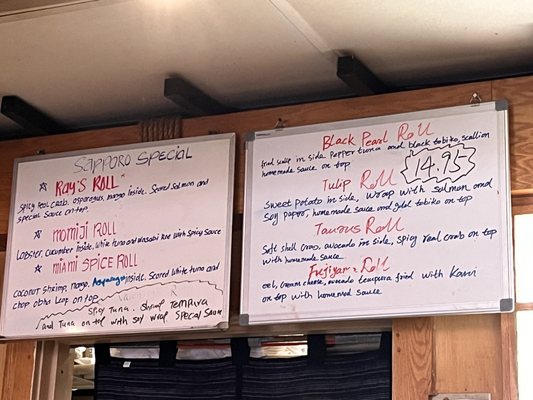 SAPPORO SPECIAL
☆ RAY'S ROLL"
Spicy Real crab. asparagus, mango inside. Seared Salmon and
special Sauce on top.
☆ MOMIJI ROLL
LOBSTER, Cucumber inside. White tuna and Wasabi with Spicy Sauce
☆ MIAMI SPICE ROLL
Coconut shrimp, mango, inside. Seared White tuna and
chop on top
Spicy TUNA. Shrimp TEMPURA
and TUNA on top with Soy wrap SPECIAL Sauce
BLACK PEARL ROLL
fried in side Pepper tuna and black tobiko, scallion
homemade sauce on top.
14.95
Tulip ROLL
Sweet Potato in side, Wrap with salmon and
soy paper, homemade sauce and gold tobiko on top
Taurus ROLL
Soft Shell Crab, avocado in side, Spicy real crab on top
with homemade sauce.
Fujiyama ROLL
eel, cream cheese, avocado tempura fried with Kani
on top with homemade sauce